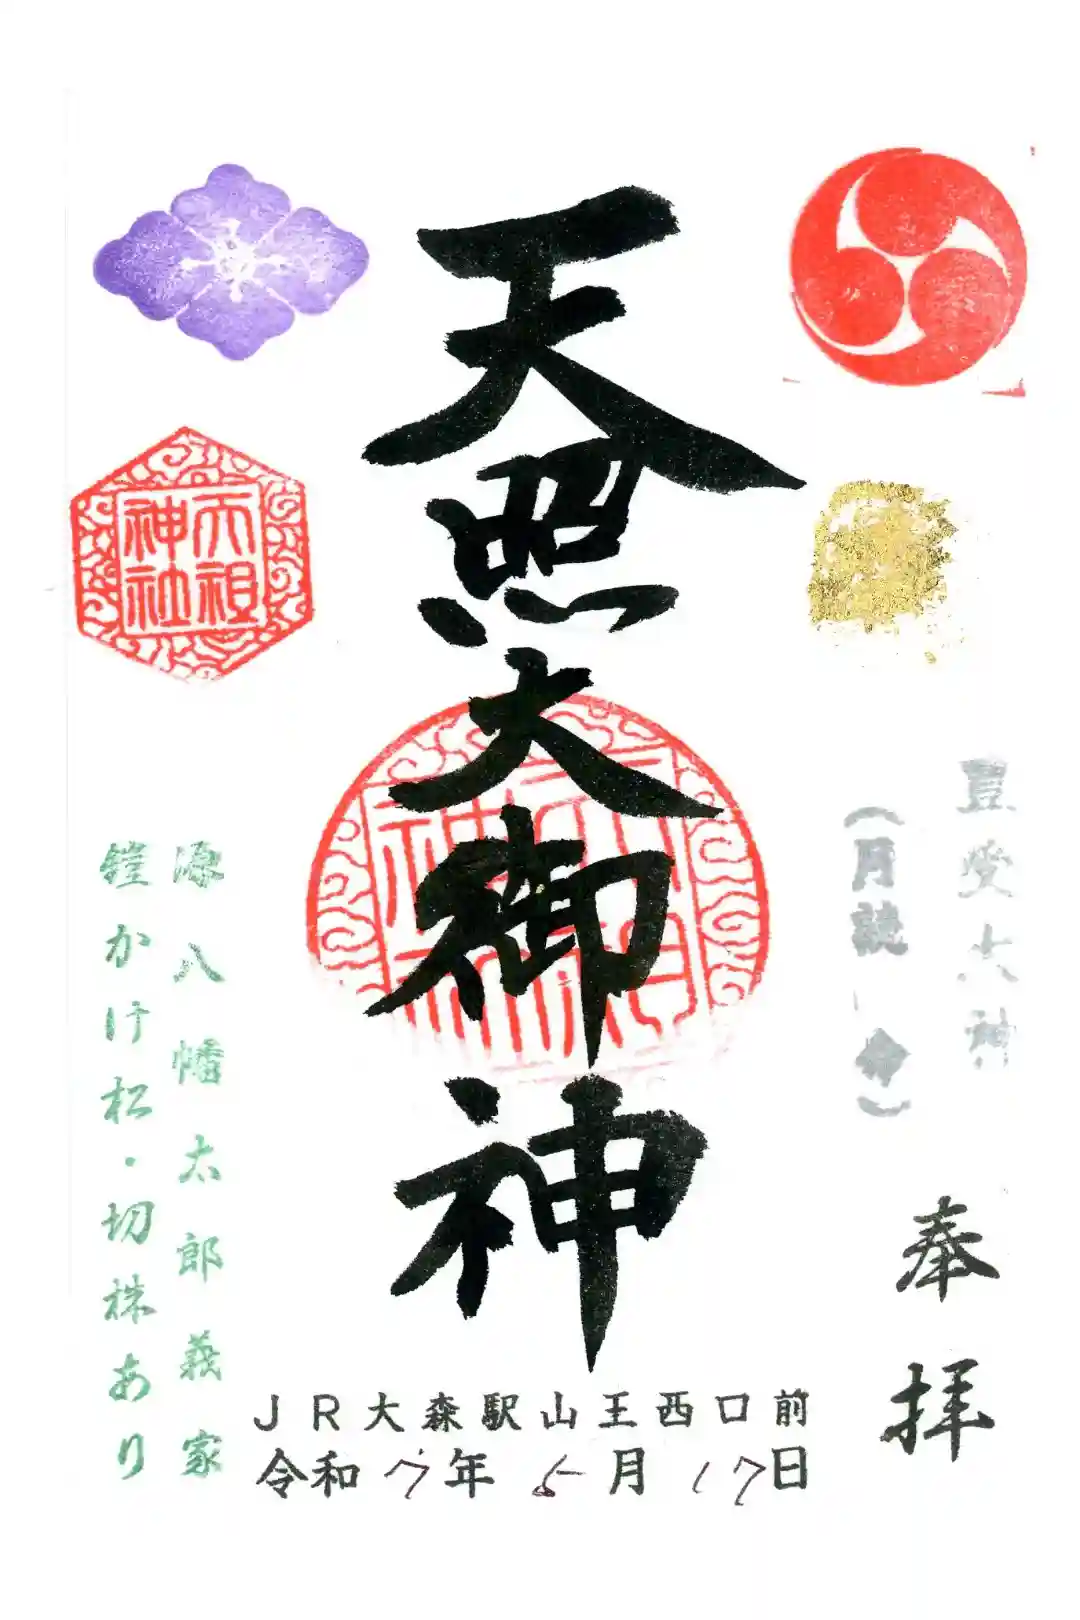 豊受大神
(月読 命)
奉拝
天照大御神
天祖
神社
源八幡太郎義家
鎧かけ松・切株あり
JR大森駅山王西口前
令和7年5月17日